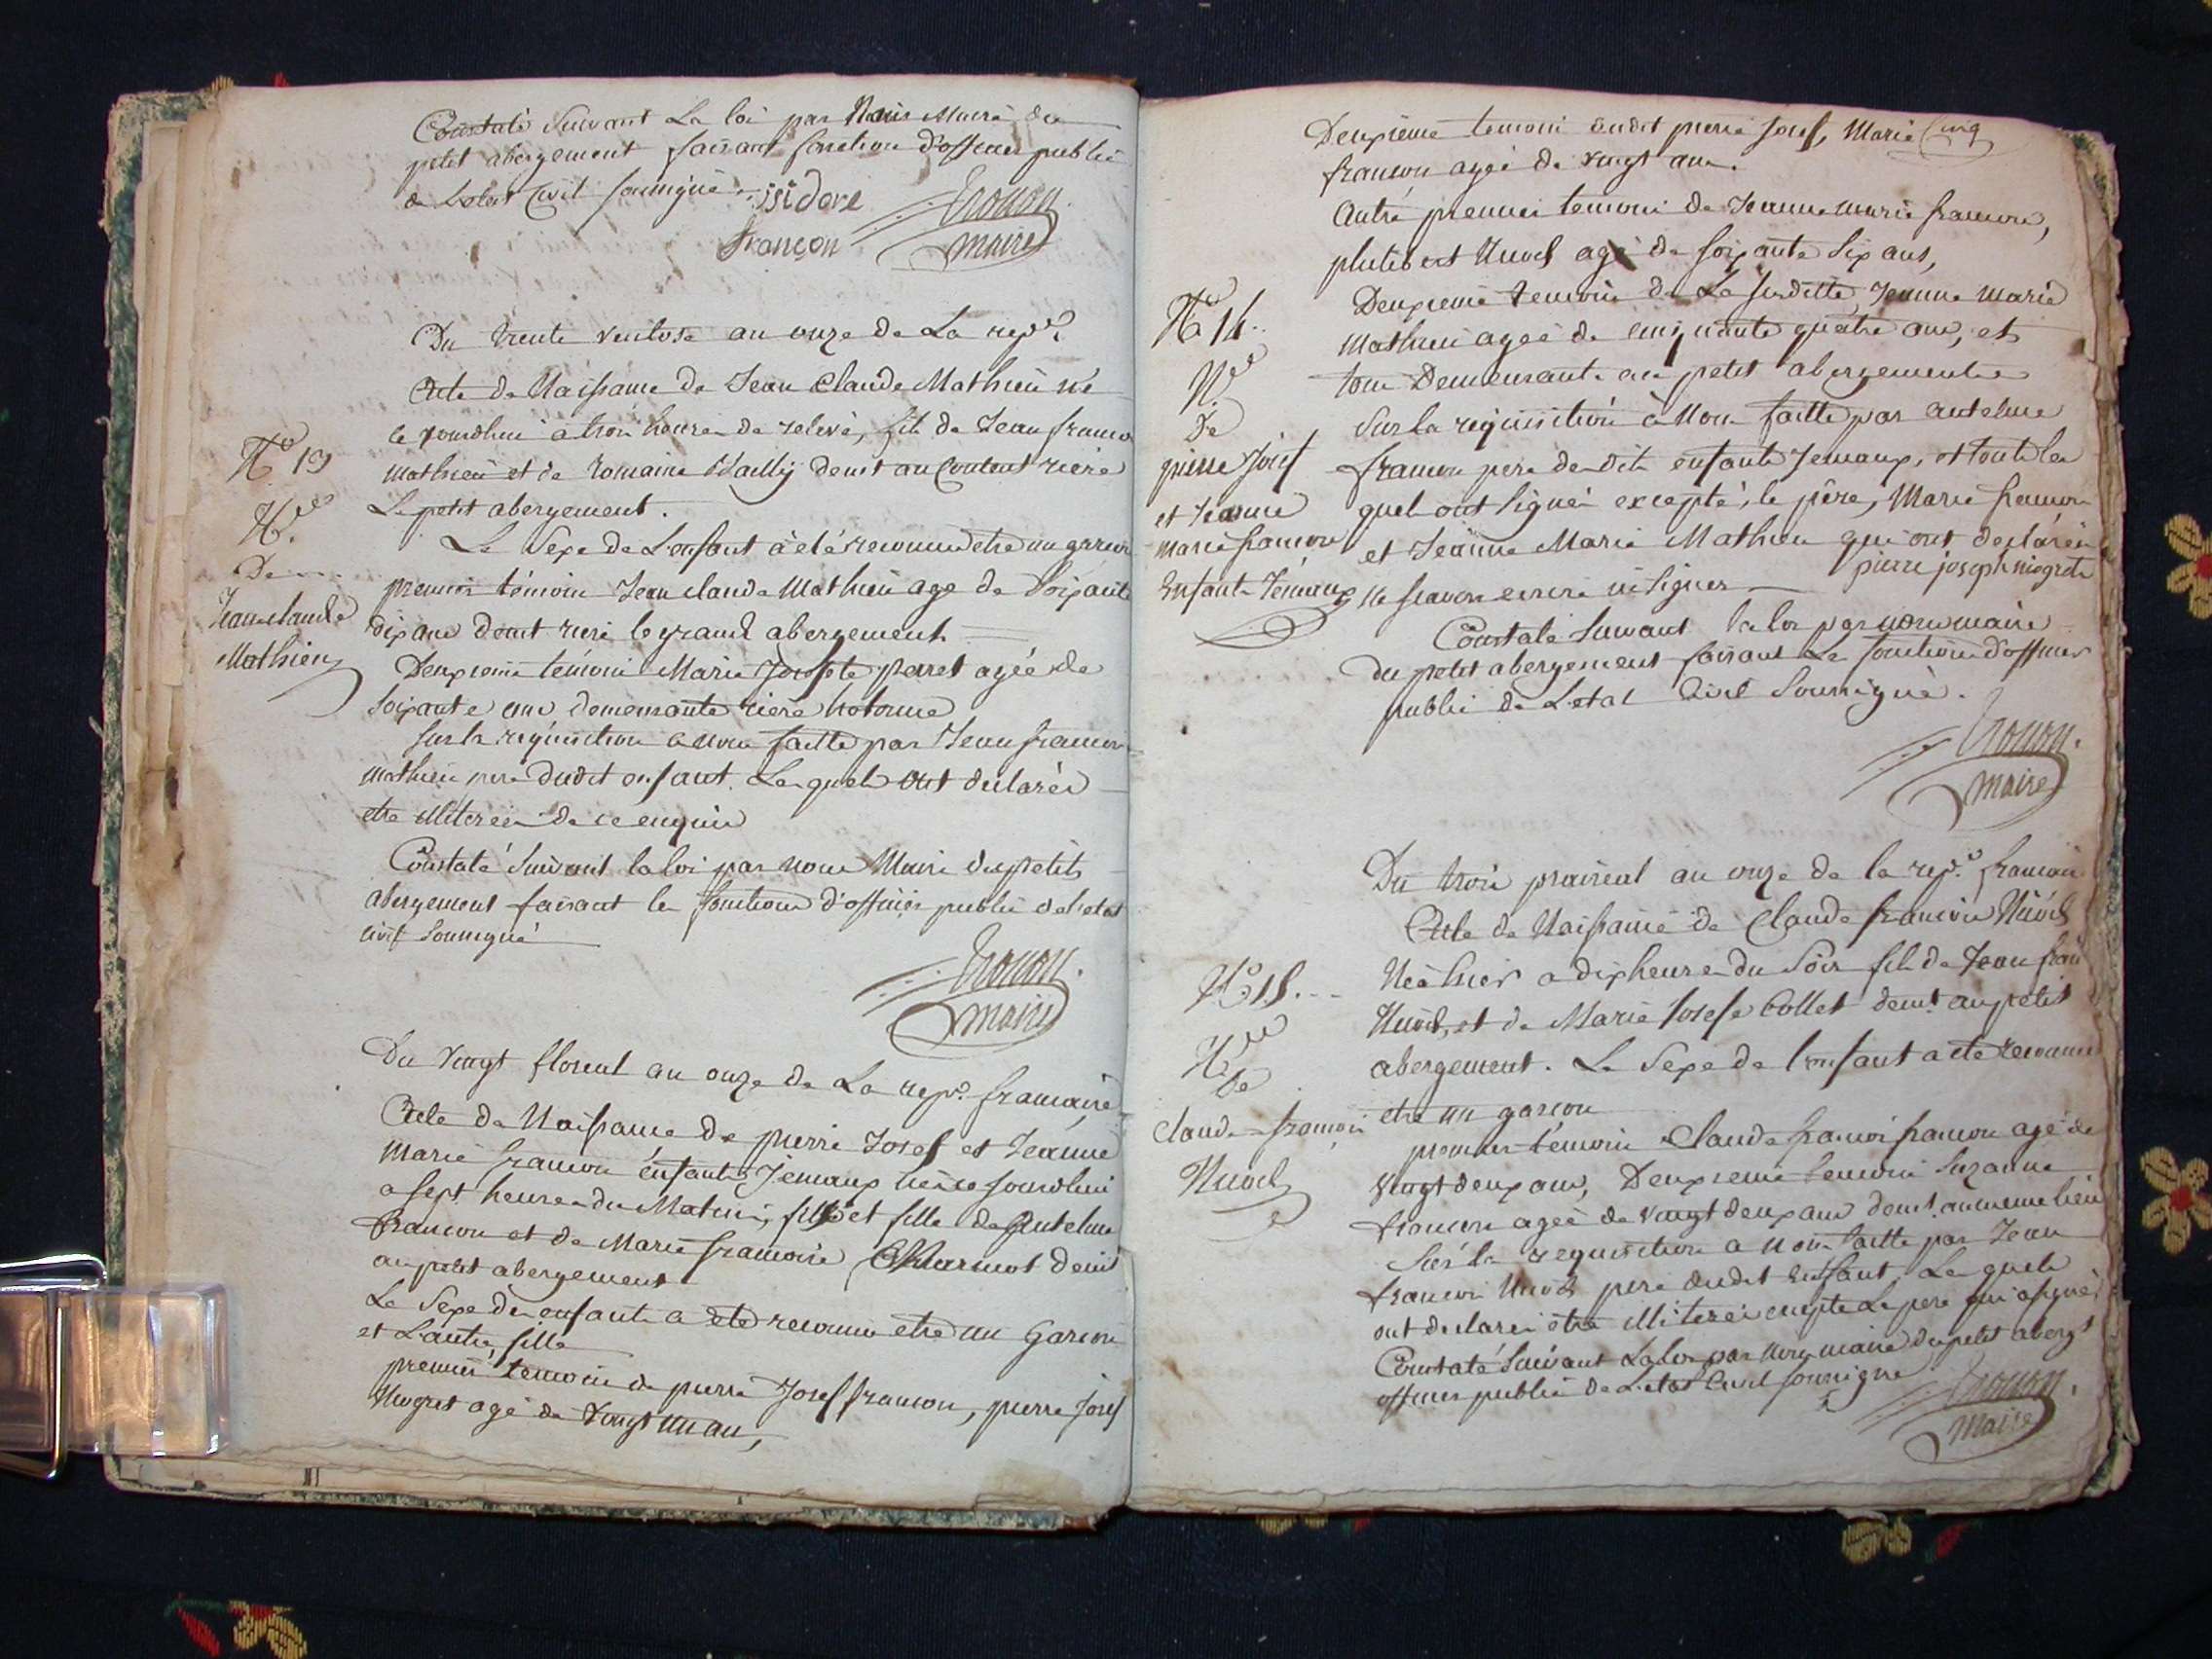 Constaté Suivant La loi par Nous Maire du
petit abergement faisant fonction d'officier public
de L'etat Civil soussigné
isidore
françon
maire
Du trente ventose an onze de La rep.
Acte de Naissance de Jean Claude Mathieu né
ce jourdhui a trois heures de relevé, fils de Jean françois
Mathieu et de Romaine Bailly demt au Content riere
Le petit abergement.
Le Sexe de L'enfant à eté reconnu etre un garcon
premier témoin Jean claude Mathieu age de Soixante
dix ans demt riere le grand abergement
Deuxieme temoin Marie Josephte perret agée de
Soixante ans demeurante riere hotonne
Sur la réquisition a nous faitte par Jean francois
Mathieu pere dudit enfant. Lesquels ont declarés
etre illiterés de ce enquis
Constaté Suivant la loi par nous Maire du petit
abergement faisant les fonctions d'officier public de l'etat
civil soussigné
maire
N° 13
N.ce
De
Jean claude
Mathieu
Du vingt floreal an onze de La rep. francaise
Acte de Naissance de pierre Josef et Jeanne
Marie francon enfants Jemaux nés ce jourdhui
a sept heures du Matin, fils et fille de Antelme
francon et de Marie francoise demt
au petit abergement
Le Sexe des enfants a été reconnu etre un Garcon
et L'autre fille
premier temoin de pierre Josef francon, pierre Josef
Niogret agé de vingt un an,
Cinq
Deuxieme temoin dudit pierre Josef, Marie
francon agée de vingt ans.
Autre premier temoin de Jeanne marie francon,
philibert agé de soixante six ans,
Deuxieme temoin de La susditte Jeanne Marie
Mathieu agée de cinquante quatre ans, et
tous Demeurants au petit abergement
Sur la requisition à Nous faitte par antelme
francon pere des dits enfants Jemaux, et touts les
quels ont signés excepté, le père, Marie francon
et Jeanne Marie Mathieu qui ont declarés
ne scavoir ecrire ni signer
pierre joseph niogret
Constaté Suivant la loi par nous maire
du petit abergement faisant Les fonctions d'officier
public de L'etat Civil Soussigné.
maire
N° 14
N.ce
De
pierre Josef
et Jeanne
marie francon
Enfants Jémaux
Du trois prairial an onze de la rep. francaise
Acte de Naissance de Claude francois
Né hier a dix heures du Soir fils de Jean fran
et de Marie Josefe Collet demt au petit
abergement. Le Sexe de l'enfant a eté reconnu
etre un garcon
premier témoin Claude francois francon agé de
vingt deux ans, Deuxieme temoin Suzanne
francon agée de vingt deux ans demt. au meme lieu
Sur la requisition a Nous faitte par Jean
francois pere dudit Enfant, Lesquels
ont declarés être illiterés excepté Le pere qui a signé
Constaté Suivant La loi par Nous maire du petit abergt
officier public de L'etat Civil soussigné
maire
N° 15
N.ce
De
Claude francois